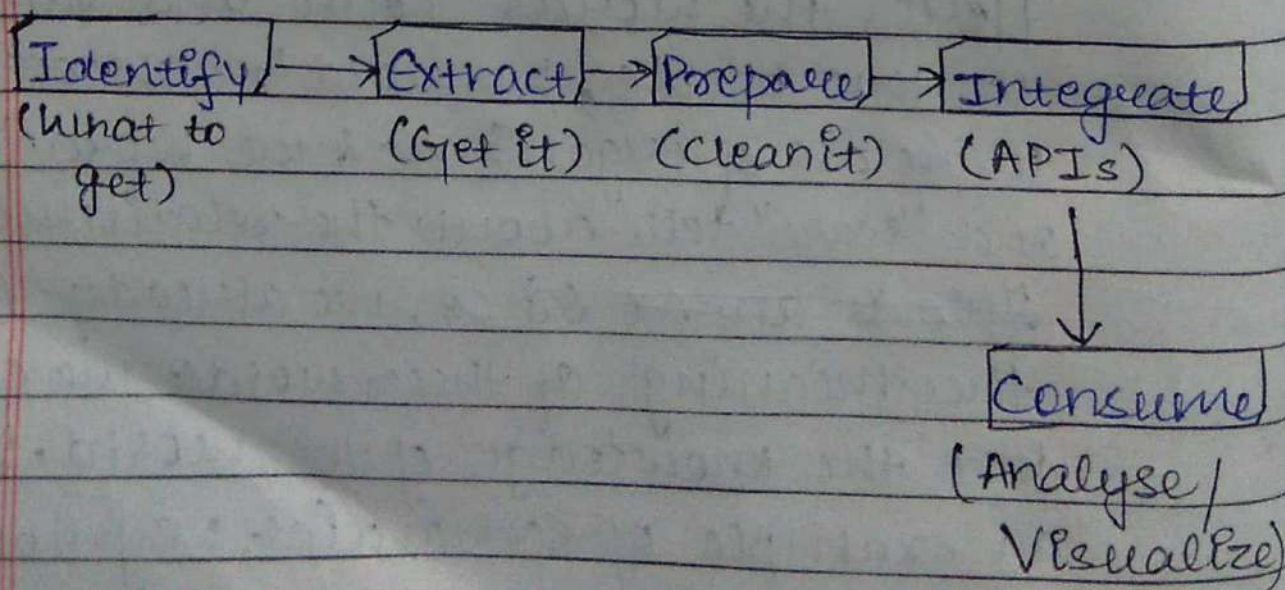 Identify → Extract → Prepare → Integrate
(What to get) (Get it) (Clean it) (APIs)
Consume
(Analyse /
Visualize)